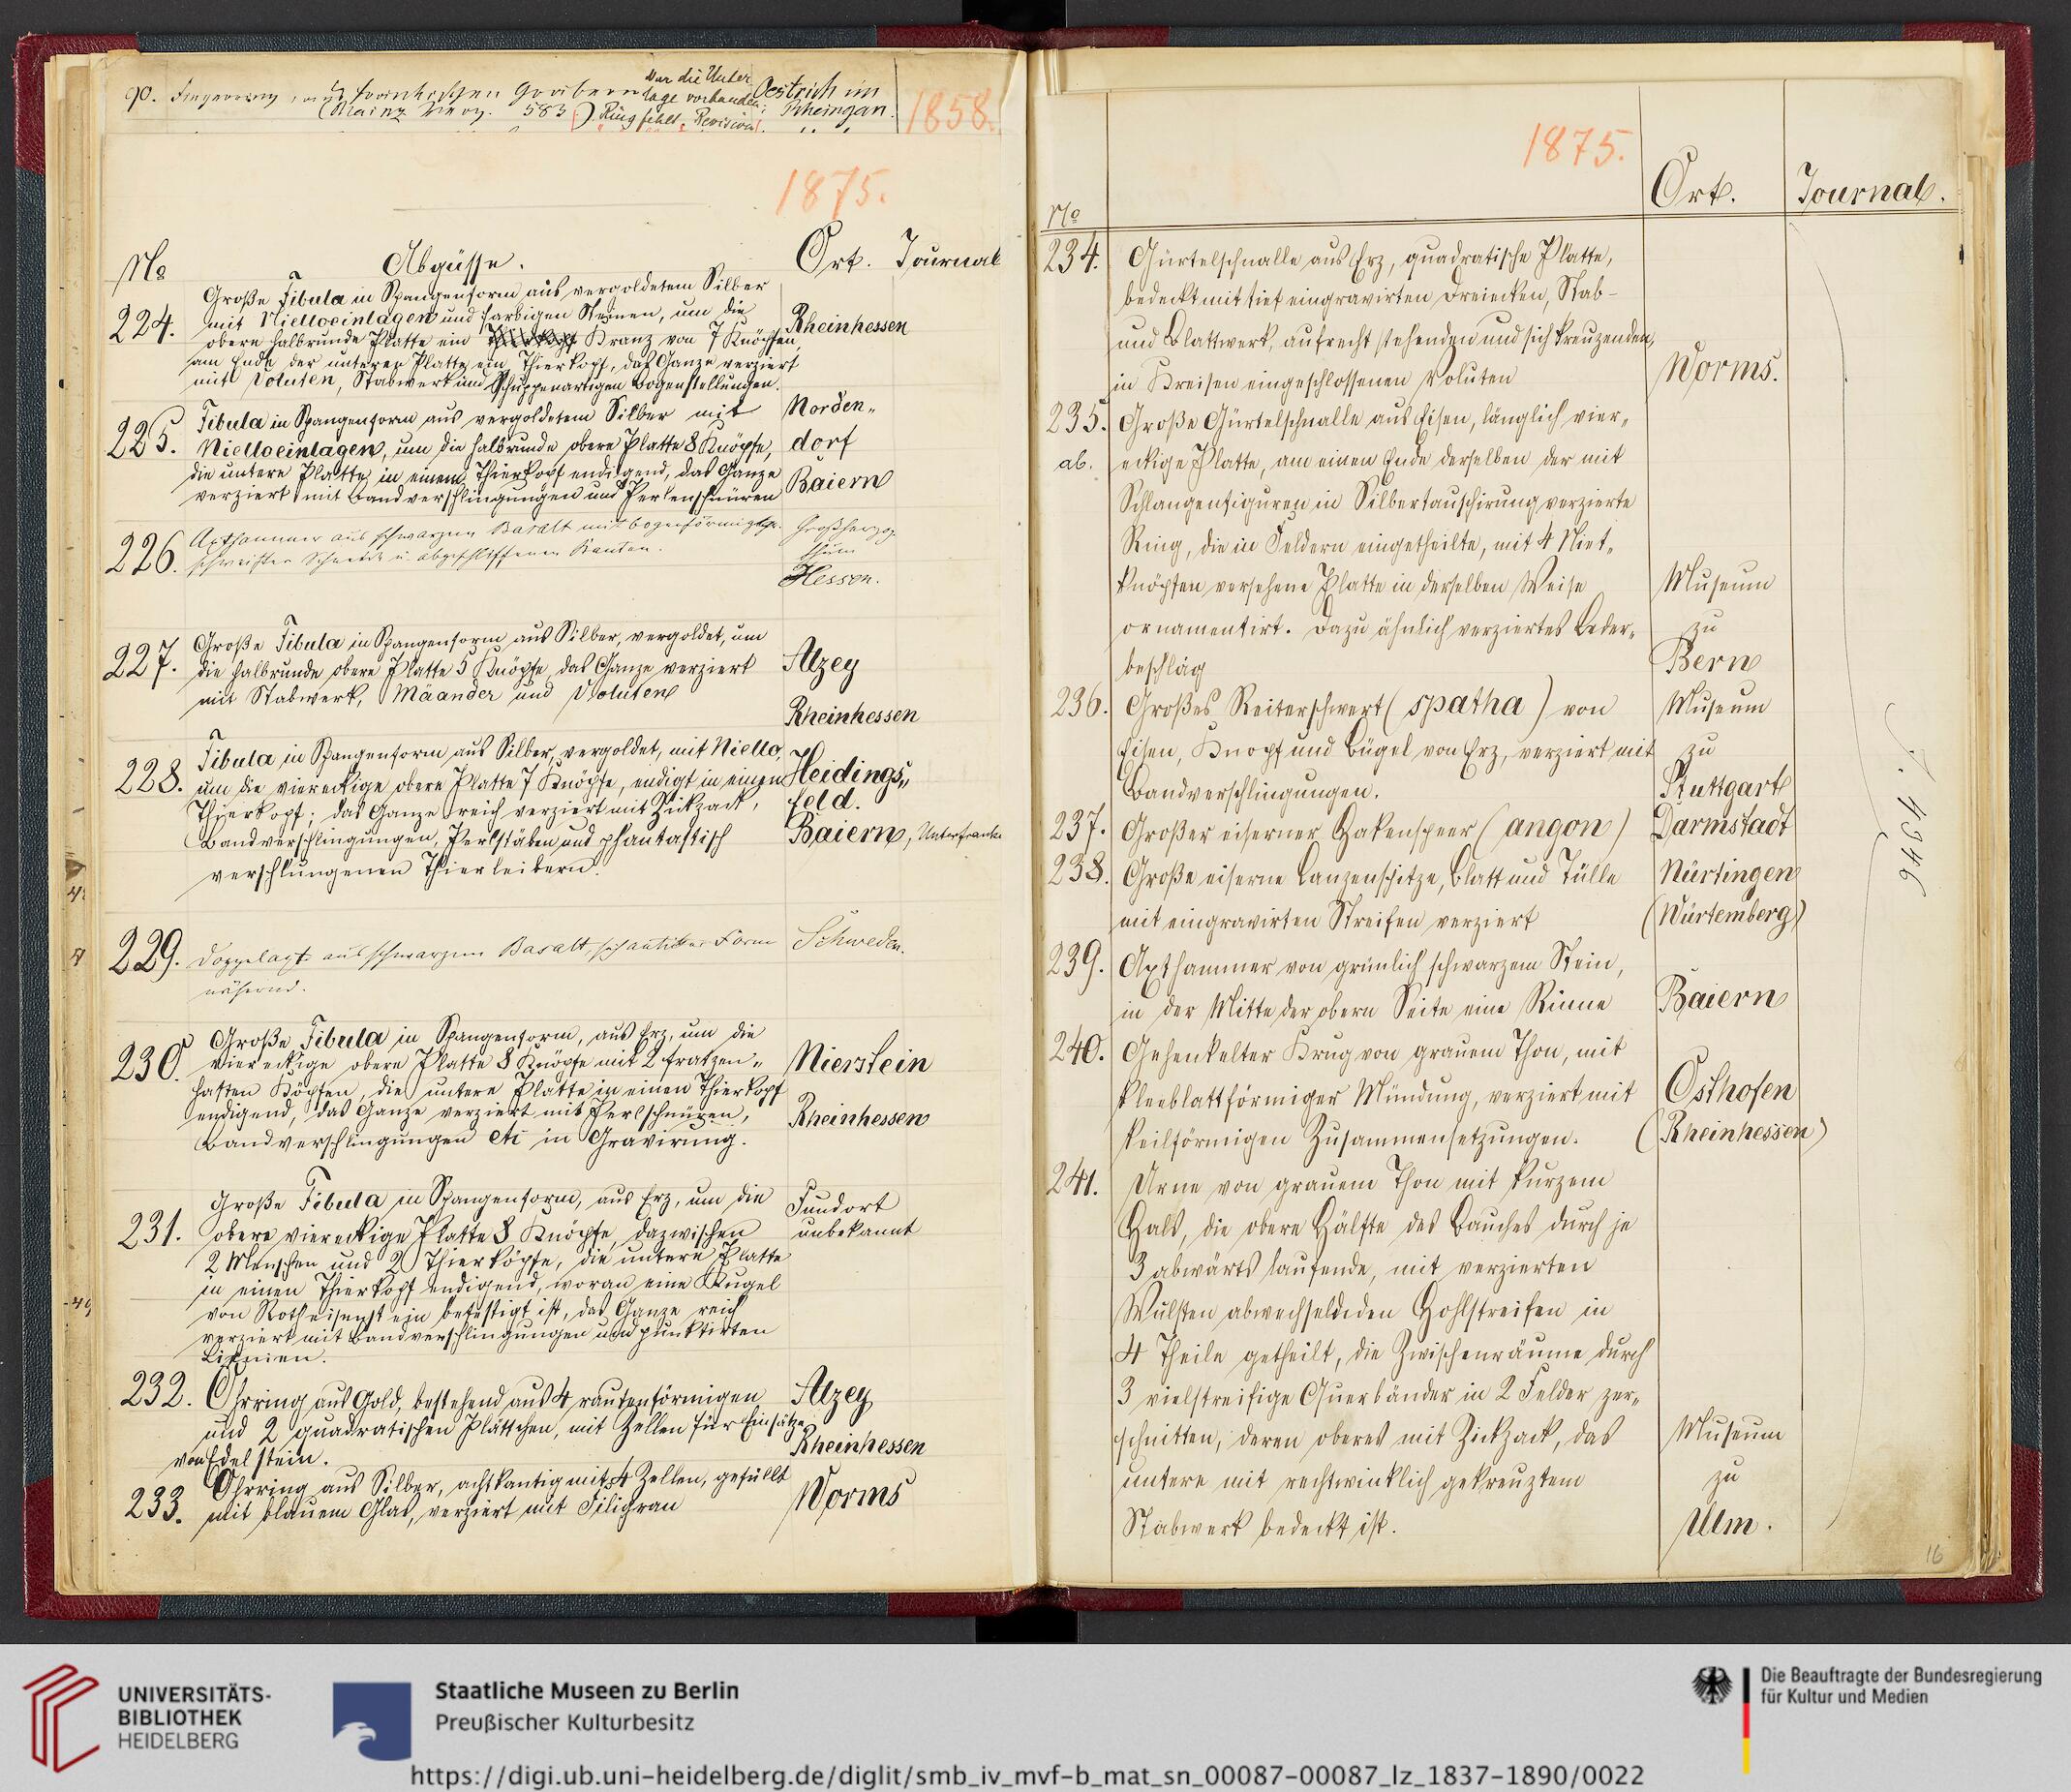 90. Fingerring, aus fränkischen Gräbern
(Mainz Verz. 583)
Nur die Unter
lage vorhanden;
Ring fehlt. Revision
Oestrich im
Rheingau.
1858.
1875.
No Abgüsse. Ort. Journal
224. Große Fibula in Spangenform aus vergoldetem Silber
mit Nielloeinlagen und farbigen Steinen, um die
obere halbrunde Platte ein Kranz von 7 Knöpfen,
am Ende der unteren Platte ein Thierkopf, das Ganze verziert
mit Voluten, Stabwerk und schuppenartigen Bogenstellungen.
Rheinhessen
225. Fibula in Spangenform aus vergoldetem Silber mit
Nielloeinlagen, um die halbrunde obere Platte 8 Knöpfe,
die untere Platte in einem Thierkopf endigend, das Ganze
verziert mit Bandverschlingungen und Perlenschnüren
Norden„
dorf
Baiern
226. Axthammer aus schwarzem Basalt mit bogenförmig ge-
schweifter Schneide u. abgeschliffenen Kanten.
Großherzog
thum
Hessen.
227. Große Fibula in Spangenform aus Silber, vergoldet, um
die halbrunde obere Platte 5 Knöpfe, das Ganze verziert
mit Stabwerk, Mäander und Voluten
Alzey
Rheinhessen
228. Fibula in Spangenform aus Silber, vergoldet, mit Niello,
um die viereckige obere Platte 7 Knöpfe, endigt in einem
Thierkopf; das Ganze reich verziert mit Zickzack,
Bandverschlingungen, Perlstäben und phantastisch
verschlungenen Thierleibern.
Heidings„
feld.
Baiern, Unterfranken
229. Doppelaxt aus schwarzem Basalt, sich antiker Form
nähernd.
Schweden.
230. Große Fibula in Spangenform, aus Erz, um die
viereckige obere Platte 8 Knöpfe mit 2 fratzen„
haften Köpfen, die untere Platte in einen Thierkopf
endigend, das Ganze verziert mit Perlschnüren,
Bandverschlingungen etc in Gravirung.
Nierstein
Rheinhessen
231. Große Fibula in Spangenform, aus Erz, um die
obere viereckige Platte 8 Knöpfe, dazwischen
2 Menschen und 2 Thierköpfe, die untere Platte
in einen Thierkopf endigend, woran eine Kugel
von Rotheisenstein befestigt ist, das Ganze reich
verziert mit Bandverschlingungen und punktirten
Linien.
Fundort
unbekannt
232. Ohrring aus Gold, bestehend aus 4 rautenförmigen
und 2 quadratischen Plättchen, mit Zellen für Einsätze
von Edelstein.
Alzey
Rheinhessen
233. Ohrring aus Silber, achtkantig mit 4 Zellen, gefüllt
mit blauem Glas, verziert mit Filigran
Worms
1875.
No Ort. Journal.
234. Gürtelschnalle aus Erz, quadratische Platte,
bedeckt mit tief eingravirten Dreiecken, Stab-
und Blattwerk, aufrecht stehenden und sich kreuzenden,
in Kreisen eingeschlossenen Voluten
Worms.
235. Große Gürtelschnalle aus Eisen, länglich vier„
ab. eckige Platte, am einen Ende derselben der mit
Schlangenfiguren in Silbertauschirung verzierte
Ring, die in Feldern eingetheilte, mit 4 Niet„
knöpfen versehene Platte in derselben Weise
ornamentirt. Dazu ähnlich verziertes Leder„
beschläg
Museum
zu
Bern
236. Großes Reiterschwert (spatha) von
Eisen, Knopf und Bügel von Erz, verziert mit
Bandverschlingungen.
Museum
zu
Stuttgart
237. Großer eiserner Hakenspeer (angon) Darmstadt
238. Große eiserne Lanzenspitze, Blatt und Tülle
mit eingravirten Streifen verziert
Nürtingen
(Würtemberg)
239. Axthammer von grünlich schwarzem Stein,
in der Mitte der obern Seite eine Rinne
Baiern
240. Gehenkelter Krug von grauem Thon, mit
kleeblattförmiger Mündung, verziert mit
keilförmigen Zusammensetzungen.
Osthofen
(Rheinhessen)
241. Urne von grauem Thon mit kurzem
Hals, die obere Hälfte des Bauches durch je
3 abwärts laufende, mit verzierten
Wulsten abwechselnden Hohlstreifen in
4 Theile getheilt, die Zwischenräume durch
3 vielstreifige Querbänder in 2 Felder zer„
schnitten, deren oberes mit Zickzack, das
untere mit rechtwinklich gekreuztem
Stabwerk bedeckt ist.
Museum
zu
Ulm.
J. 4946
16
UNIVERSITÄTS-
BIBLIOTHEK
HEIDELBERG
Staatliche Museen zu Berlin
Preußischer Kulturbesitz
Die Beauftragte der Bundesregierung
für Kultur und Medien
https://digi.ub.uni-heidelberg.de/diglit/smb_iv_mvf-b_mat_sn_00087-00087_lz_1837-1890/0022